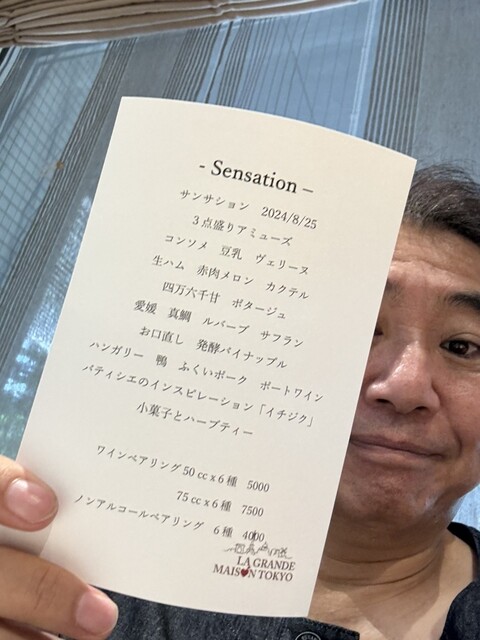 - Sensation –
サンサション　2024/8/25
3点盛りアミューズ
コンソメ　豆乳　ヴェリーヌ
生ハム　赤肉メロン　カクテル
四万六千甘　ポタージュ
愛媛　真鯛　ルバーブ　サフラン
お口直し　発酵パイナップル
ハンガリー　鴨　ふくいポーク　ポートワイン
パティシエのインスピレーション「イチジク」
小菓子とハーブティー
ワインペアリング50 cc x 6 種　5000
75 cc x 6 種　7500
ノンアルコールペアリング　6 種　4000
LA GRANDE
MAISON TOKYO